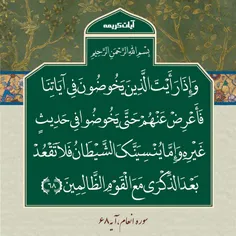 آیات کریمه
بِسْمِ اللهِ الرَّحْمٰنِ الرَّحِيْمِ
وَإِذَا رَأَيْتَ الَّذِينَ يَخُوضُونَ فِي آيَاتِنَا
فَأَعْرِضْ عَنْهُمْ حَتَّى يَخُوضُوا فِي حَدِيثٍ
غَيْرِهِ وَإِمَّا يُنْسِيَنَّكَ الشَّيْطَانُ فَلَا تَقْعُدْ
بَعْدَ الذِّكْرَى مَعَ الْقَوْمِ الظَّالِمِينَ ﴿٦٨﴾
سوره انعام، آیه ۶۸